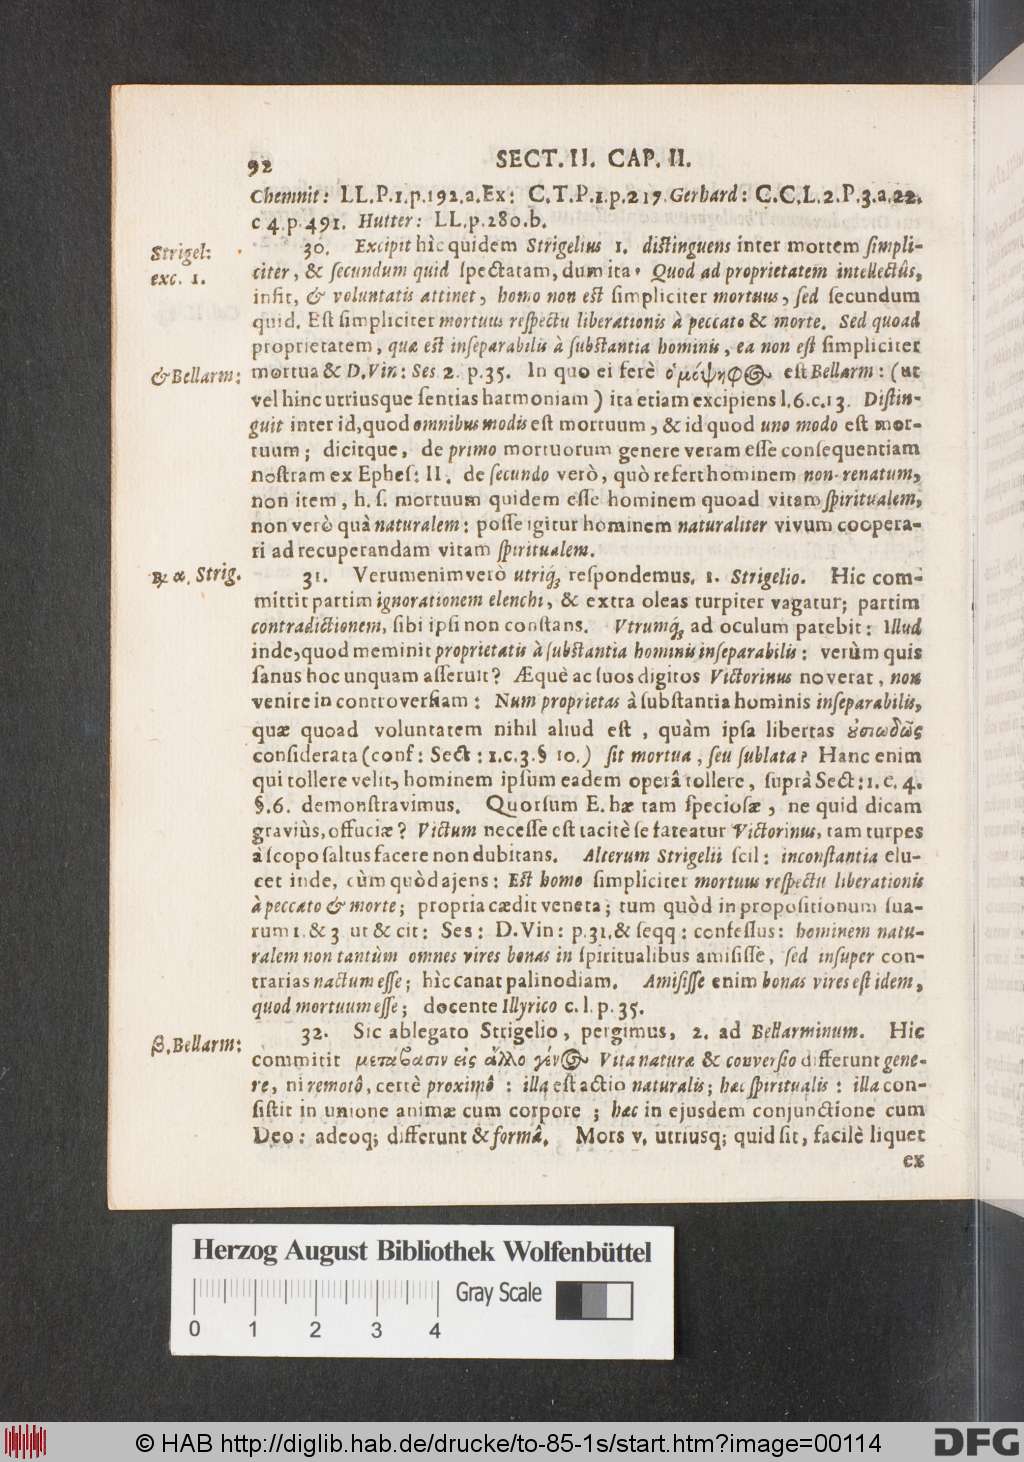 92 SECT. II. CAP. II.
Chemnit: LL.P.1.p.192.a.Ex: C.T.P.1.p.217. Gerhard: C.C.L.2.P.3.a.22.
c 4.p.491. Hutter: LL.p.280.b.
Strigel:
exc. 1.
30. Excipit hîc quidem Strigelius 1. distinguens inter mortem simpli-
citer, & secundum quid spectatam, dum ita: Quod ad proprietatem intellectûs,
infit, & voluntatis attinet, homo non est simpliciter mortuus, sed secundum
quid. Est simpliciter mortuus respectu liberationis à peccato & morte. Sed quoad
proprietatem, quæ est inseparabilis à substantia hominis, ea non est simpliciter
& Bellarm:
mortua & D. Vin: Ses. 2. p.35. In quo ei ferè ὁμόψηφ⊙ est Bellarm: (ut
vel hinc utriusque sentias harmoniam) ita etiam excipiens l.6.c.13. Distin-
guit inter id, quod omnibus modis est mortuum, & id quod uno modo est mor-
tuum; dicitque, de primo mortuorum genere veram esse consequentiam
nostram ex Ephes: II. de secundo verò, quò refert hominem non-renatum,
non item, h.s. mortuum quidem esse hominem quoad vitam spiritualem,
non verò quà naturalem: posse igitur hominem naturaliter vivum coopera-
ri ad recuperandam vitam spiritualem.
℞ α. Strig.
31. Verumenimverò utriq; respondemus. 1. Strigelio. Hic com-
mittit partim ignorationem elenchi, & extra oleas turpiter vagatur; partim
contradictionem, sibi ipsi non constans. Vtrumq; ad oculum patebit: Illud
inde, quod meminit proprietatis à substantia hominis inseparabilis: verùm quis
sanus hoc unquam asseruit? Æquè ac suos digitos Victorinus noverat, non
venire in controversiam: Num proprietas à substantia hominis inseparabilis,
quæ quoad voluntatem nihil aliud est, quàm ipsa libertas οὐσιωδῶς
considerata (conf: Sect: 1.c.3.§ 10.) sit mortua, seu sublata? Hanc enim
qui tollere velit, hominem ipsum eadem operâ tollere, suprà Sect: 1. c. 4.
§.6. demonstravimus. Quorsum E. hæ tam speciosæ, ne quid dicam
graviùs, offuciæ? Victum necesse est tacitè se fateatur Victorinus, tam turpes
à scopo saltus facere non dubitans. Alterum Strigelii scil: inconstantia elu-
cet inde, cùm quòd ajens: Est homo simpliciter mortuus respectu liberationis
à peccato & morte; propria cædit veneta; tum quòd in propositionum sua-
rum 1. & 3 ut & cit: Ses: D. Vin: p.31. & seqq: confessus: hominem natu-
ralem non tantùm omnes vires bonas in spiritualibus amisisse, sed insuper con-
trarias nactum esse; hîc canat palinodiam. Amisisse enim bonas vires est idem,
quod mortuum esse; docente Illyrico c. l. p. 35.
β. Bellarm:
32. Sic ablegato Strigelio, pergimus, 2. ad Bellarminum. Hic
committit μετάβασιν εἰς ἄλλο γέν⊙ Vita naturæ & conversio differunt gene-
re, ni remotô, certè proximô: illa est actio naturalis; hæc spiritualis: illa con-
sistit in unione animæ cum corpore; hæc in ejusdem conjunctione cum
Deo: adeoq; differunt & formâ. Mors v. utriusq; quid sit, facilè liquet
ex
Herzog August Bibliothek Wolfenbüttel
Gray Scale
0 1 2 3 4
© HAB http://diglib.hab.de/drucke/to-85-1s/start.htm?image=00114
DFG